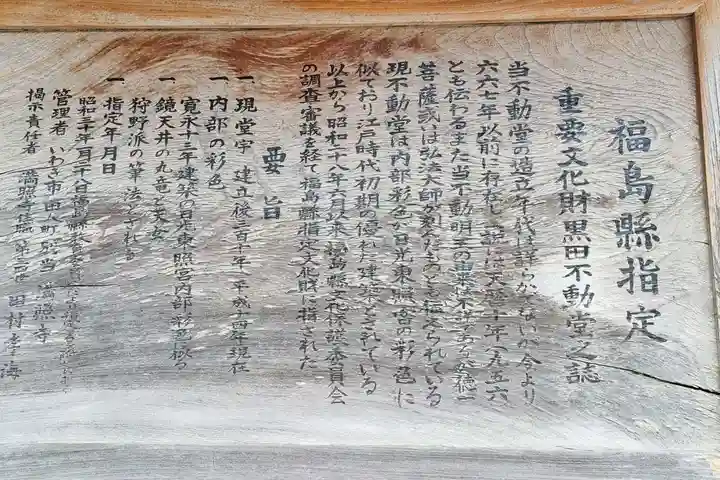 福島縣指定
重要文化財黒田不動堂之誌
当不動堂の造立年代は詳らかでないが今より
六六七年以前に存在し一説には天慶十年(九五六
とも伝わるまた当不動明王の
菩薩或は弘法大師が刻んだものと伝えられている
現不動堂は内部彩色が日光東照宮の彩色に
似ており江戸時代初期の優れた建築とされている
以上から昭和二十八年六月以来福島縣文化保護委員会
の調査審議を経て福島縣指定文化財に指された
要旨
一 現堂宇 建立後三百十年 平成十四年現在
一 内部の彩色
寛永十三年建築の日光東照宮内部彩色に似る
一 鏡天井の丸竜と天女
狩野派の筆法とされる
一 指定年月日
昭和三十年
管理者 いわき市田人町別当 満照寺
掲示責任者 満照寺住職 田村孝海